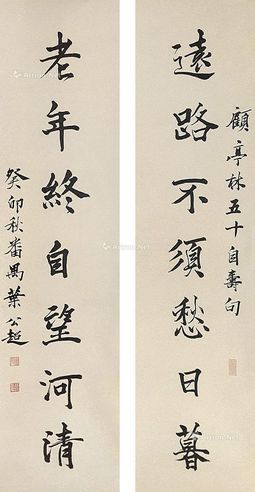 顧亭林五十自壽句
遠路不須愁日暮
老年終自望河清
癸卯秋番禺葉公超